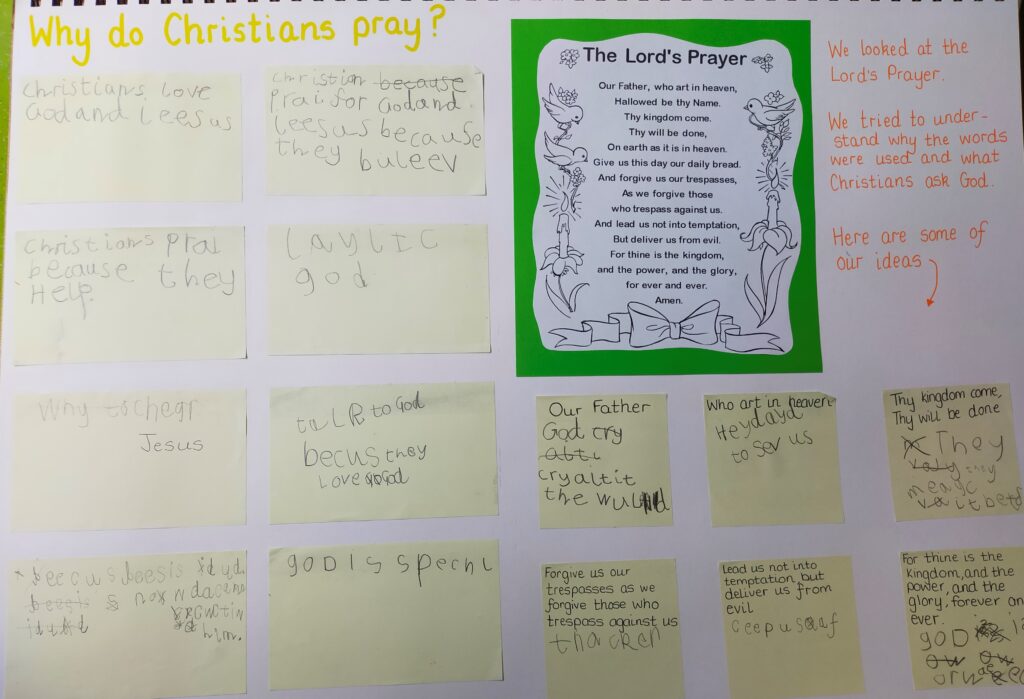 Why do Christians pray?
Christians love
God and Leesus
christian because
prai for God and
leesus because
they buleev
christians prai
because they
Help.
Laylic
god
Why tochegr
Jesus
talk to God
becus they
love God
God is specnl
The Lord's Prayer
Our Father, who art in heaven,
Hallowed be thy Name.
Thy kingdom come.
Thy will be done,
On earth as it is in heaven.
Give us this day our daily bread.
And forgive us our trespasses,
As we forgive those
who trespass against us.
And lead us not into temptation,
But deliver us from evil.
For thine is the kingdom,
and the power, and the glory,
for ever and ever.
Amen.
We looked at the
Lord's Prayer.
We tried to under-
stand why the words
were used and what
Christians ask God.
Here are some of
our ideas
Our Father
God cry
cryaltit
the
Who art in heaven
Heydayd
to sev us
Thy kingdom come,
Thy will be done
They
they
Forgive us our
trespasses as we
forgive those who
trespass against us
Lead us not into
temptation but
deliver us from
evil
ceep us
For thine is the
kingdom, and the
power, and the
glory, forever an
ever.
god